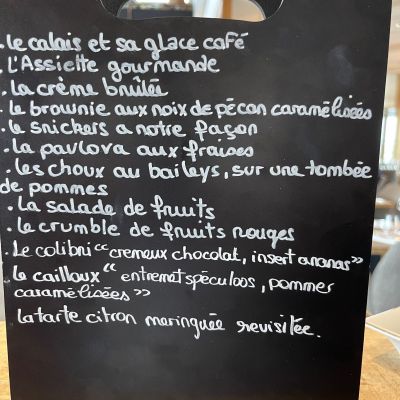 . le calais et sa glace café
. L'Assiette gourmande
. la crème brûlée
. le brownie aux noix de pécan caramélisées
. le snickers a notre façon
. la pavlova aux fraises
. les choux au baileys, sur une tombée
de pommes
. la salade de fruits
. le crumble de fruits rouges
. Le colibri "cremeux chocolat, insert ananas"
le caillaux "entremet spéculoos, pommes
caramélisées"
la tarte citron meringuée revisitée.